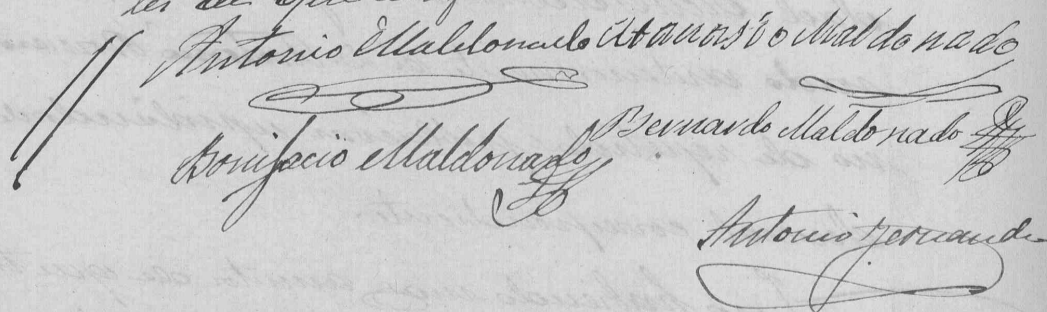 Antonio Maldonado Atanasio Maldonado
Bonifacio Maldonado Bernardo Maldonado
Antonio Fernande